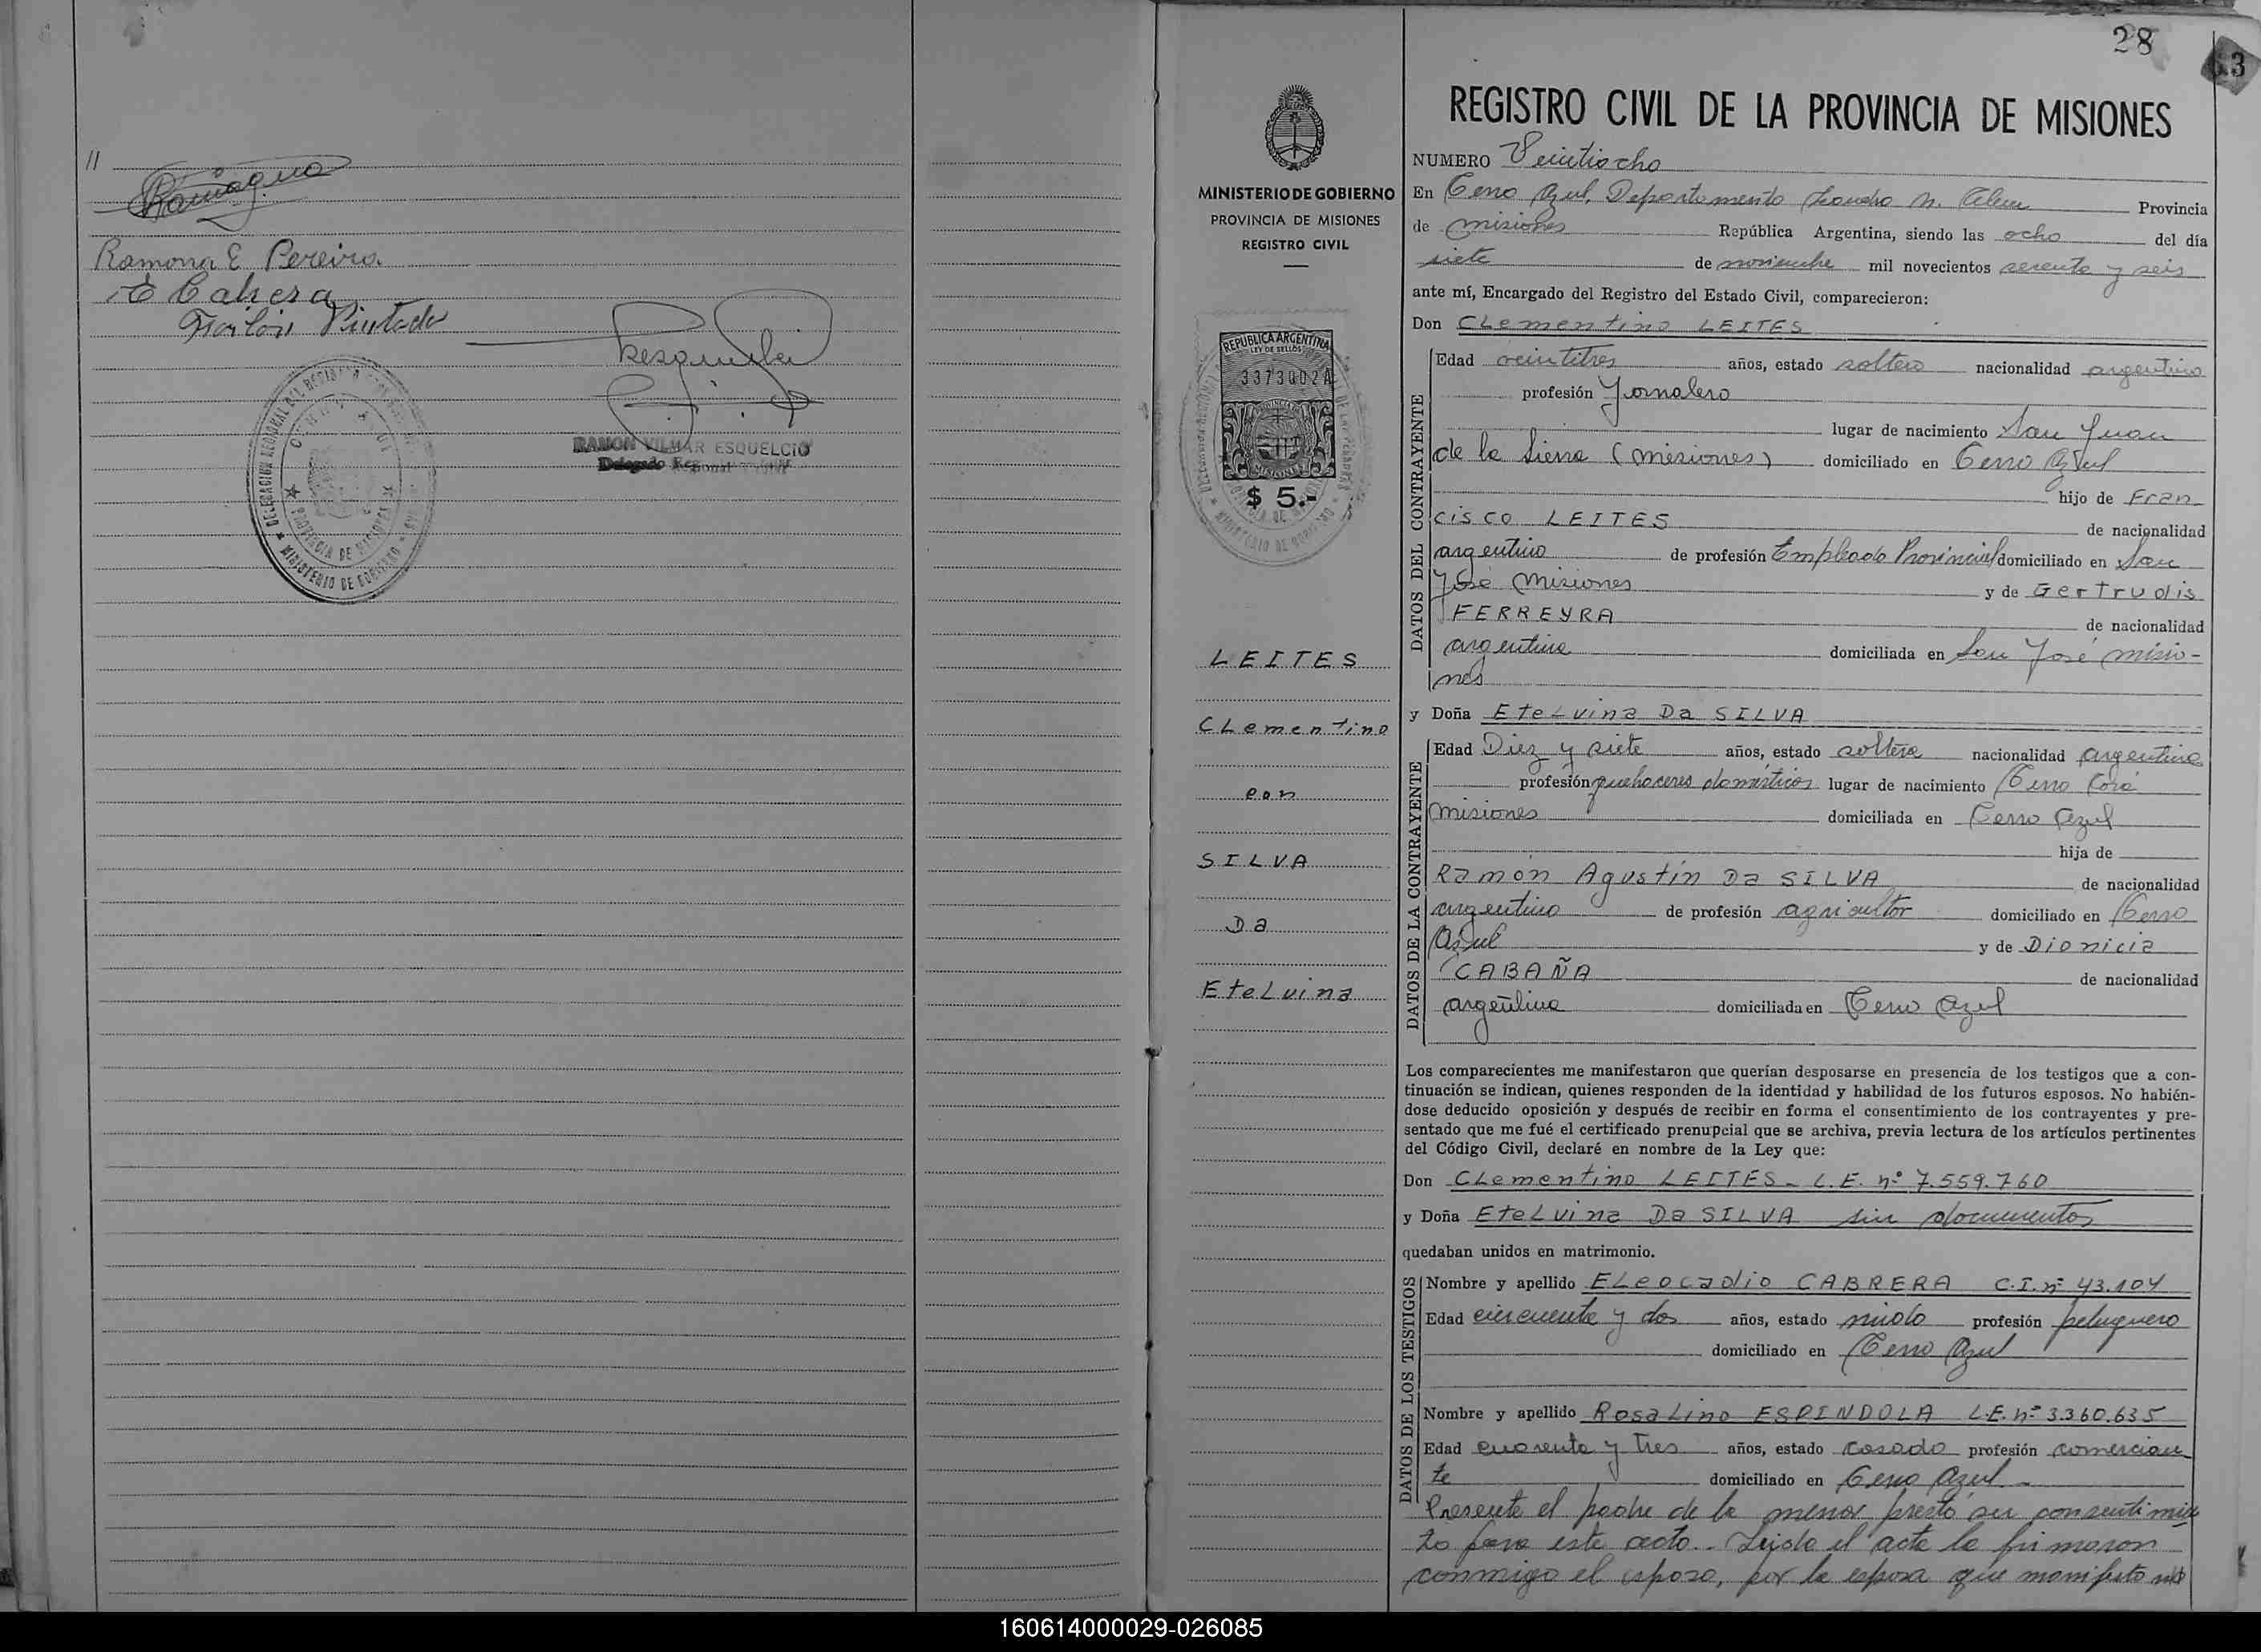 //
Ramona E Pereira
E Cabrera
Pintado
RAMON VILMAR ESQUELCIO
Delegado Regional
MINISTERIO DE GOBIERNO
PROVINCIA DE MISIONES
28
63
REGISTRO CIVIL DE LA PROVINCIA DE MISIONES
MINISTERIO DE GOBIERNO
PROVINCIA DE MISIONES
REGISTRO CIVIL
REPUBLICA ARGENTINA
LEY DE SELLOS
3373002A
MISIONES
$ 5.-
LEITES
CLementino
con
SILVA
Da
EteLvina
NUMERO Veintiocho
En Cerro Azul, Departamento Leandro N. Alem Provincia
de Misiones República Argentina, siendo las ocho del día
siete de noviembre mil novecientos sesenta y seis
ante mí, Encargado del Registro del Estado Civil, comparecieron:
Don CLementino LEITES
DATOS DEL CONTRAYENTE
Edad veintitres años, estado soltero nacionalidad argentino
profesión Jornalero
lugar de nacimiento San Juan
de la Sierra (Misiones) domiciliado en Cerro Azul
hijo de Fran
cisco LEITES de nacionalidad
argentino de profesión Empleado Provincial domiciliado en San
José Misiones y de Gertrudis
FERREYRA de nacionalidad
argentina domiciliada en San José Misio-
nes
y Doña EteLvina Da SILVA
DATOS DE LA CONTRAYENTE
Edad Diez y siete años, estado soltera nacionalidad argentina
profesión quehaceres domésticos lugar de nacimiento Cerro Corá
Misiones domiciliada en Cerro Azul
hija de
Ramón Agustín Da SILVA de nacionalidad
argentino de profesión agricultor domiciliado en Cerro
Azul y de Dionicia
CABAÑA de nacionalidad
argentina domiciliada en Cerro Azul
Los comparecientes me manifestaron que querían desposarse en presencia de los testigos que a con-
tinuación se indican, quienes responden de la identidad y habilidad de los futuros esposos. No habién-
dose deducido oposición y después de recibir en forma el consentimiento de los contrayentes y pre-
sentado que me fué el certificado prenupcial que se archiva, previa lectura de los artículos pertinentes
del Código Civil, declaré en nombre de la Ley que:
Don CLementino LEITES - L.E. nº 7.559.760
y Doña EteLvina Da SILVA sin documentos
quedaban unidos en matrimonio.
DATOS DE LOS TESTIGOS
Nombre y apellido ELeocadio CABRERA C.I. nº 43.104
Edad cincuenta y dos años, estado viudo profesión peluquero
domiciliado en Cerro Azul
Nombre y apellido RosaLino ESPINDOLA L.E. nº 3.360.635
Edad cuarenta y tres años, estado casado profesión comercian
te domiciliado en Cerro Azul.
Presente el padre de la menor prestó su consentimien
to para este acto.- Leída el acta la firmaron
conmigo el esposo, por la esposa que manifestó no
160614000029-026085